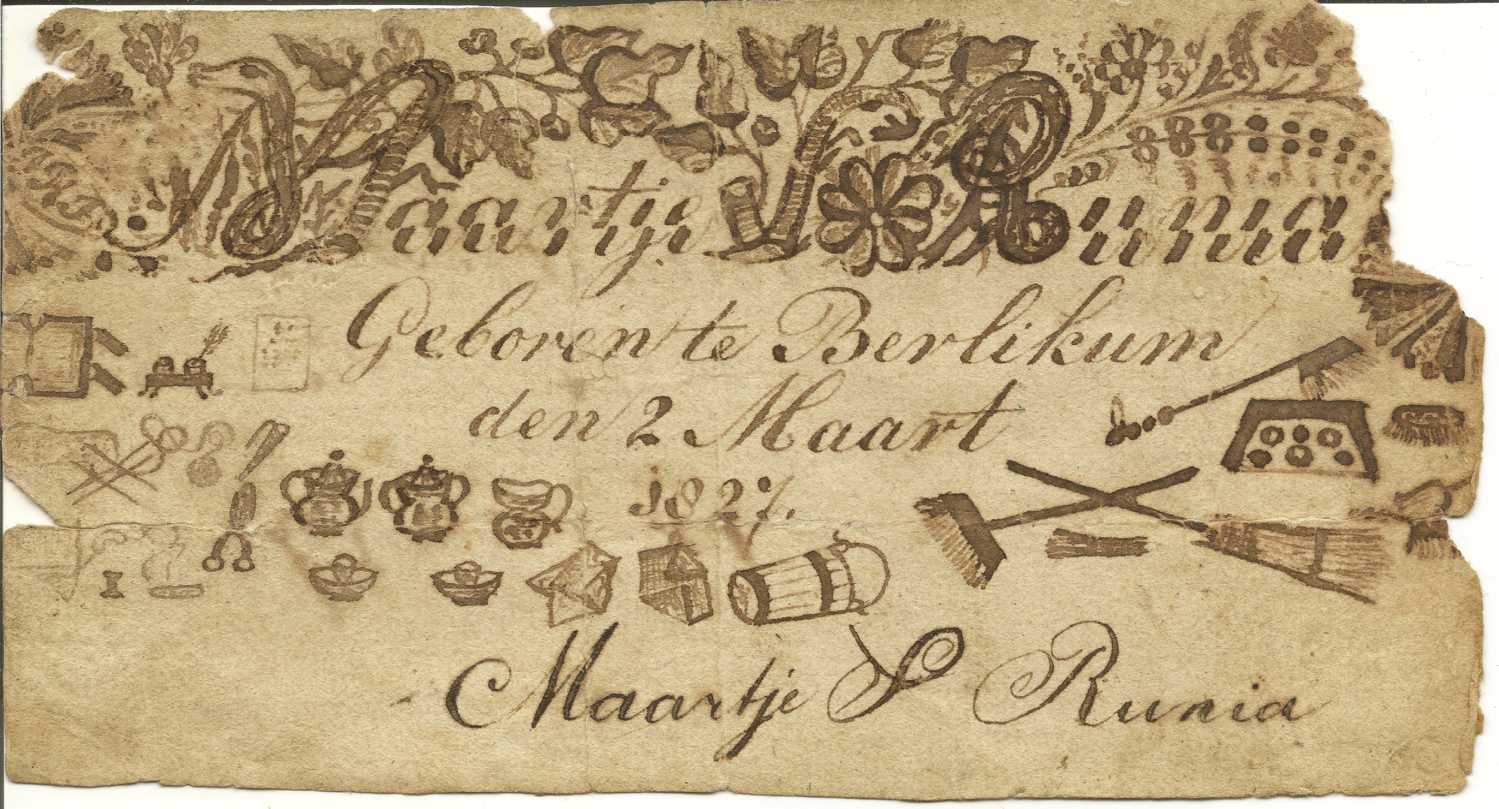 Maartje S Runia
Geboren te Berlikum
den 2 Maart
1827.
Maartje S Runia